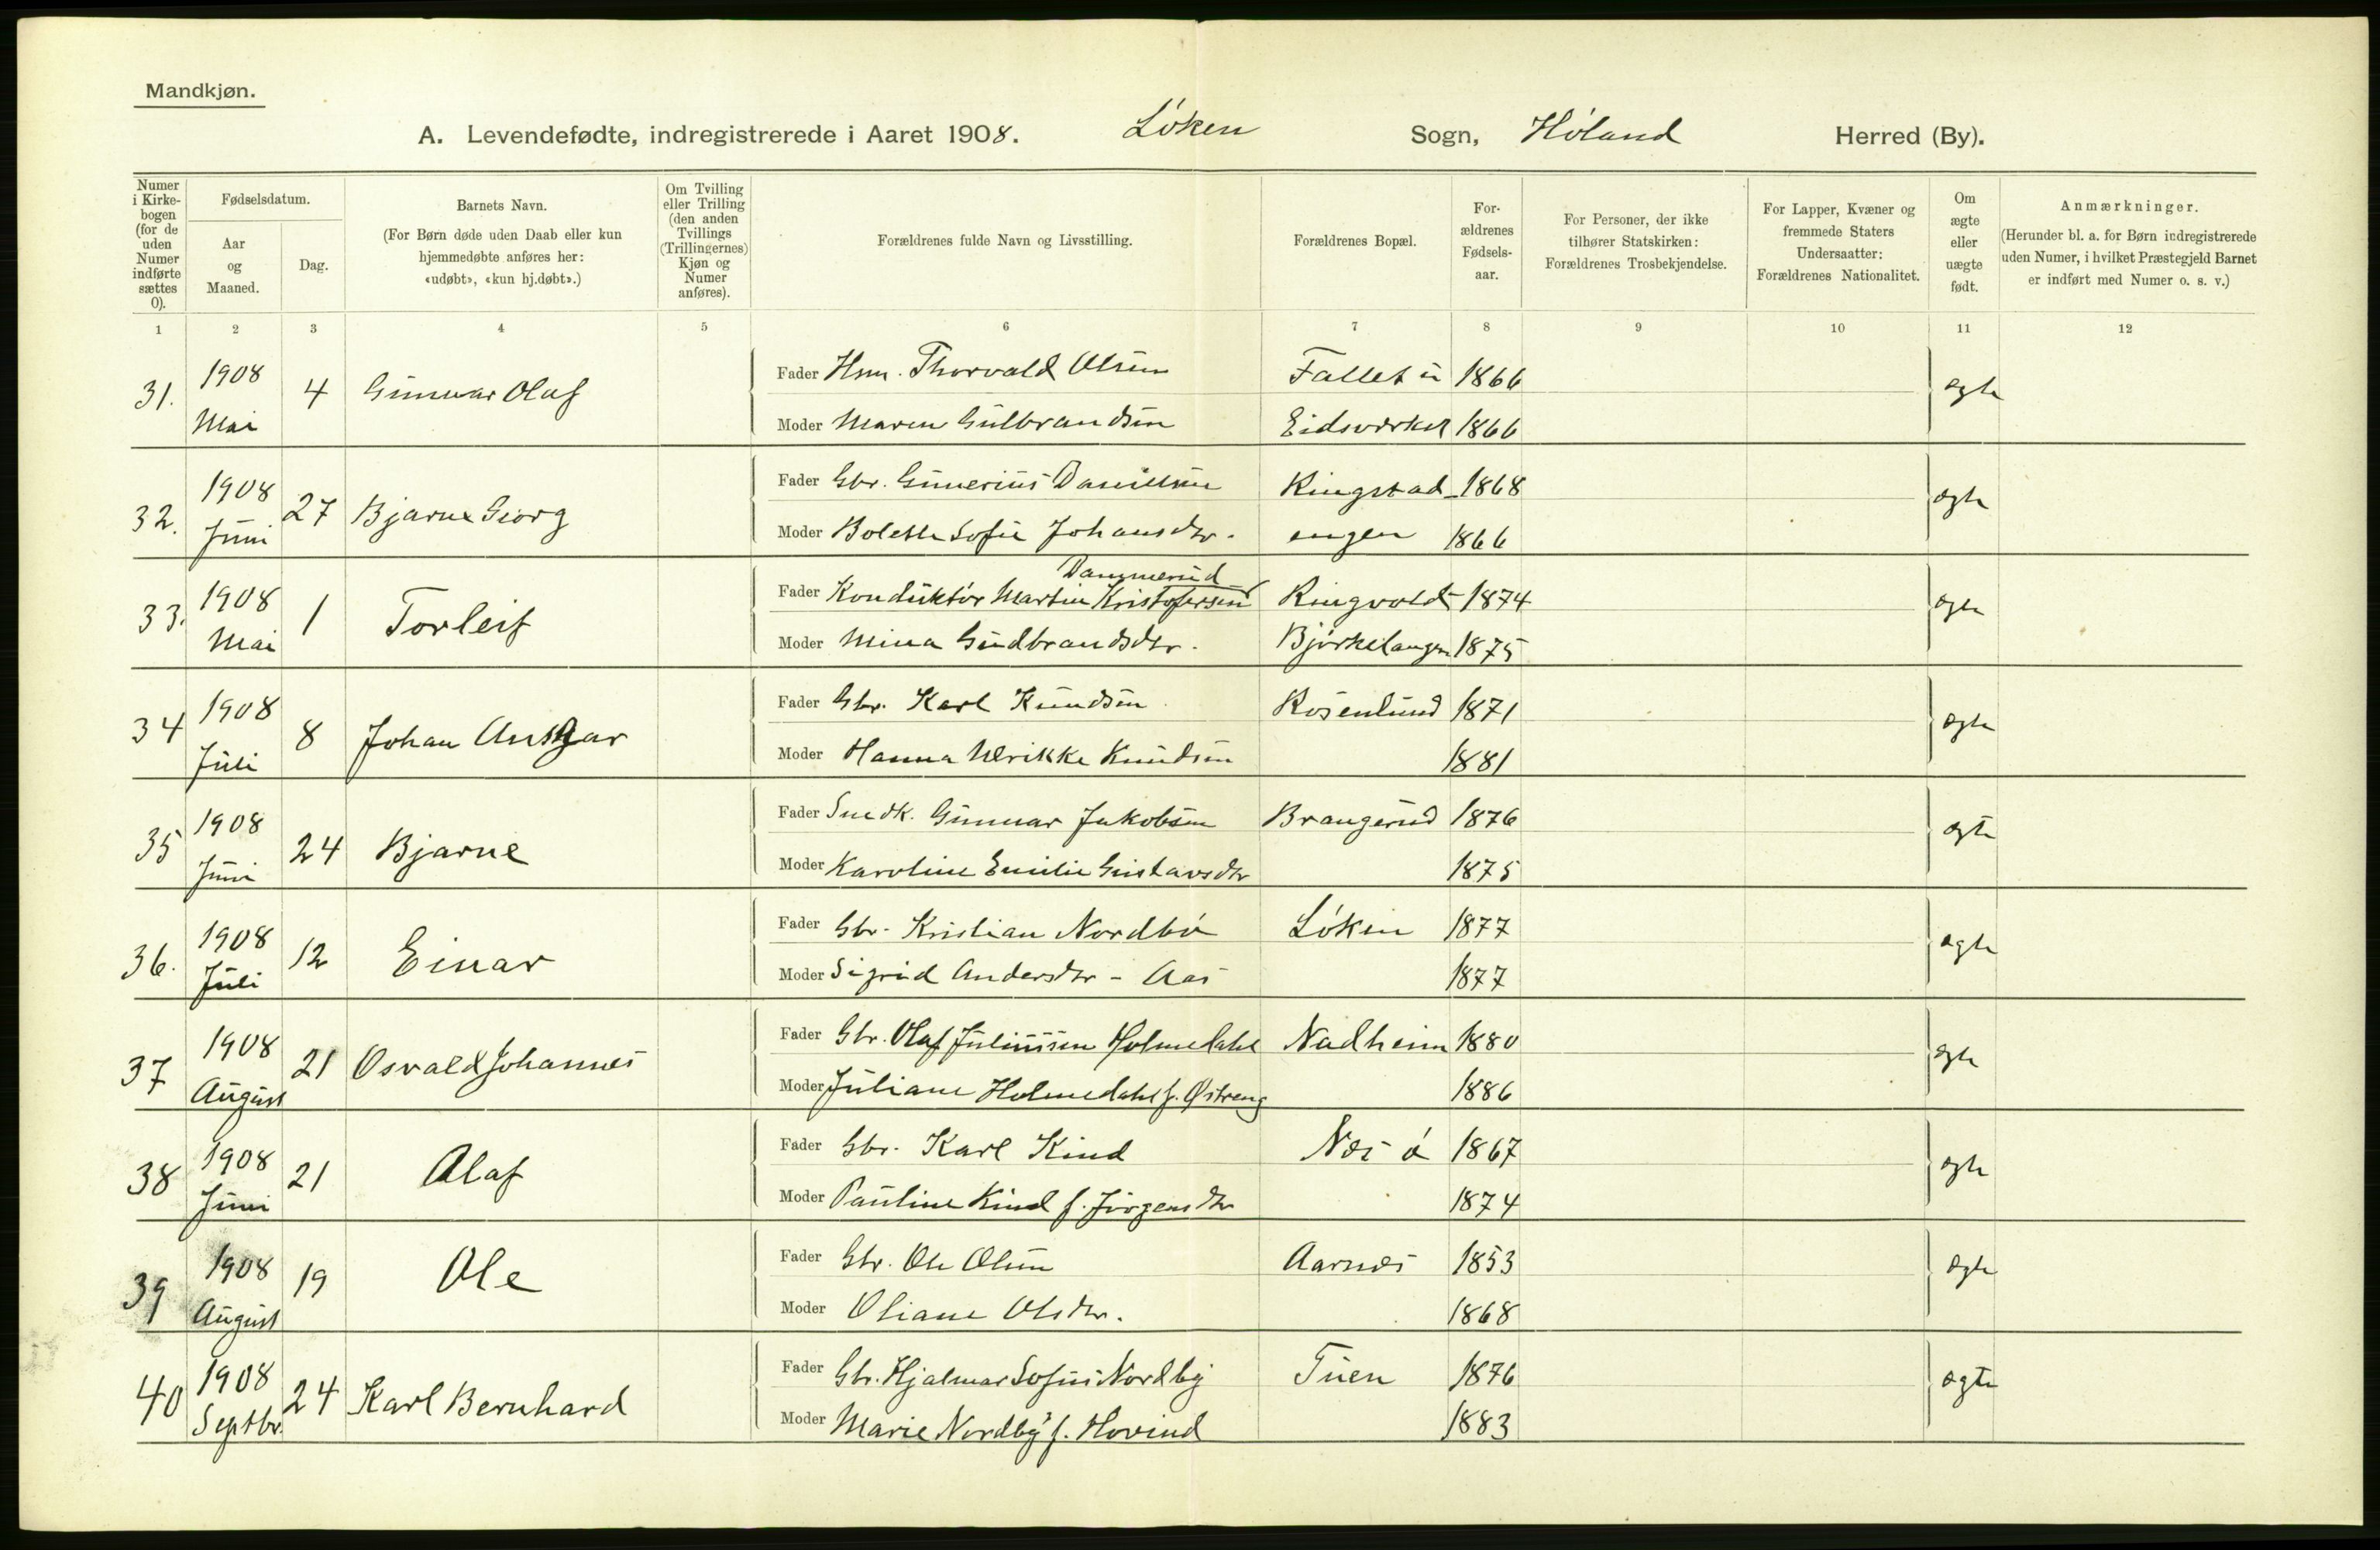 Mandkjøn.
A. Levendefødte, indregistrerede i Aaret 1908. Løken Sogn, Høland Herred (By).
Numer i Kirkebogen (for de uden Numer indførte sættes 0).
Fødselsdatum.
Aar og Maaned.
Dag.
Barnets Navn.
(For Børn døde uden Daab eller kun hjemmedøbte anføres her: «udøbt», «kun hj.døbt».)
Om Tvilling eller Trilling (den anden Tvillings (Trillingernes) Kjøn og Numer anføres).
Forældrenes fulde Navn og Livsstilling.
Forældrenes Bopæl.
Forældrenes Fødselsaar.
For Personer, der ikke tilhører Statskirken: Forældrenes Trosbekjendelse.
For Lapper, Kvæner og fremmede Staters Undersaatter: Forældrenes Nationalitet.
Om ægte eller uægte født.
Anmærkninger.
(Herunder bl. a. for Børn indregistrerede uden Numer, i hvilket Præstegjeld Barnet er indført med Numer o. s. v.)
1 2 3 4 5 6 7 8 9 10 11 12
31. 1908 Mai 4 Gunnar Olaf
Fader Hsm. Thorvald Olsen Fallet u 1866 ægte
Moder Maren Gulbrandsen Eidsverket 1866
32. 1908 Juni 27 Bjarne Georg
Fader Gbr. Gunerius Danielsen Ringstad- 1868 ægte
Moder Bolette Sofie Johansdtr. engen 1866
33. 1908 Mai 1 Torleif
Dammerud
Fader Konduktør Martin Kristofersen Ringvold 1874 ægte
Moder Mina Gudbrandsdtr. Bjørkelangen 1875
34 1908 Juli 8 Johan Ansgar
Fader Gbr. Karl Knudsen Rosenlund 1871 ægte
Moder Hanna Ulrikke Knudsen 1881
35 1908 Juni 24 Bjarne
Fader Snedk. Gunnar Jakobsen Brangerud 1876 ægte
Moder Karoline Emilie Gustavsdtr 1875
36. 1908 Juli 12 Einar
Fader Gbr. Kristian Nordbø Løken 1877 ægte
Moder Sigrid Andersdtr - Aas 1877
37 1908 August 21 Osvald Johannes
Fader Gbr. Olaf Juliussen Holmedahl Nadheim 1880 ægte
Moder Juliane Holmedahl f. Østreng 1886
38 1908 Juni 21 Olaf
Fader Gbr. Karl Kind Næs ø 1867 ægte
Moder Pauline Kind f. Jørgensdtr 1874
39 1908 August 19 Ole
Fader Gbr. Ole Olsen Aarnæs 1853 ægte
Moder Oliane Olsdtr. 1868
40 1908 Septbr. 24 Karl Bernhard
Fader Gbr. Hjalmar Sofus Nordby Tuen 1876 ægte
Moder Marie Nordby f. Hovind 1883